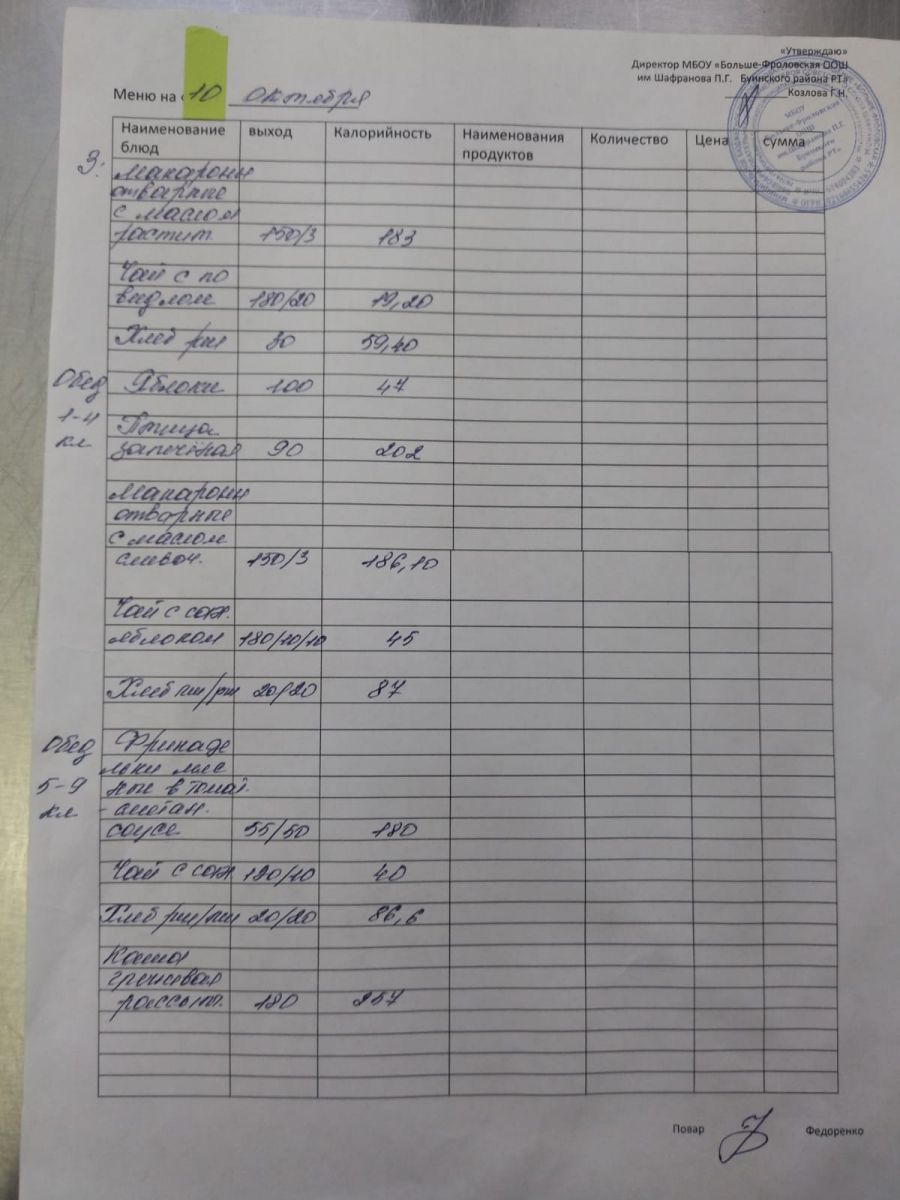 «Утверждаю»
Директор МБОУ «Больше-Фроловская ООШ
им Шафранова П.Г. Буинского района РТ»
Козлова Г.Н.
Меню на «10 октября
Наименование блюд выход Калорийность Наименования продуктов Количество Цена сумма
З.
Макароны
отварные
с маслом
растит. 150/3 183
Чай с по
видлом 180/20 19,20
Хлеб рж 30 59,40
Обед Яблоки 100 47
1-4 Птица
кл запечёная 90 202
Макароны
отварные
с маслом
сливоч. 150/3 186,10
Чай с сах.
яблоком 180/10/10 45
Хлеб пш/рж 20/20 87
Обед Фрикаде
льки мяс
5-9 ные в томат.
кл - сметан.
соусе 55/50 180
Чай с сах 190/10 40
Хлеб рж/пш 20/20 86,6
Каша
гречневая
рассып. 180 257
Повар Федоренко